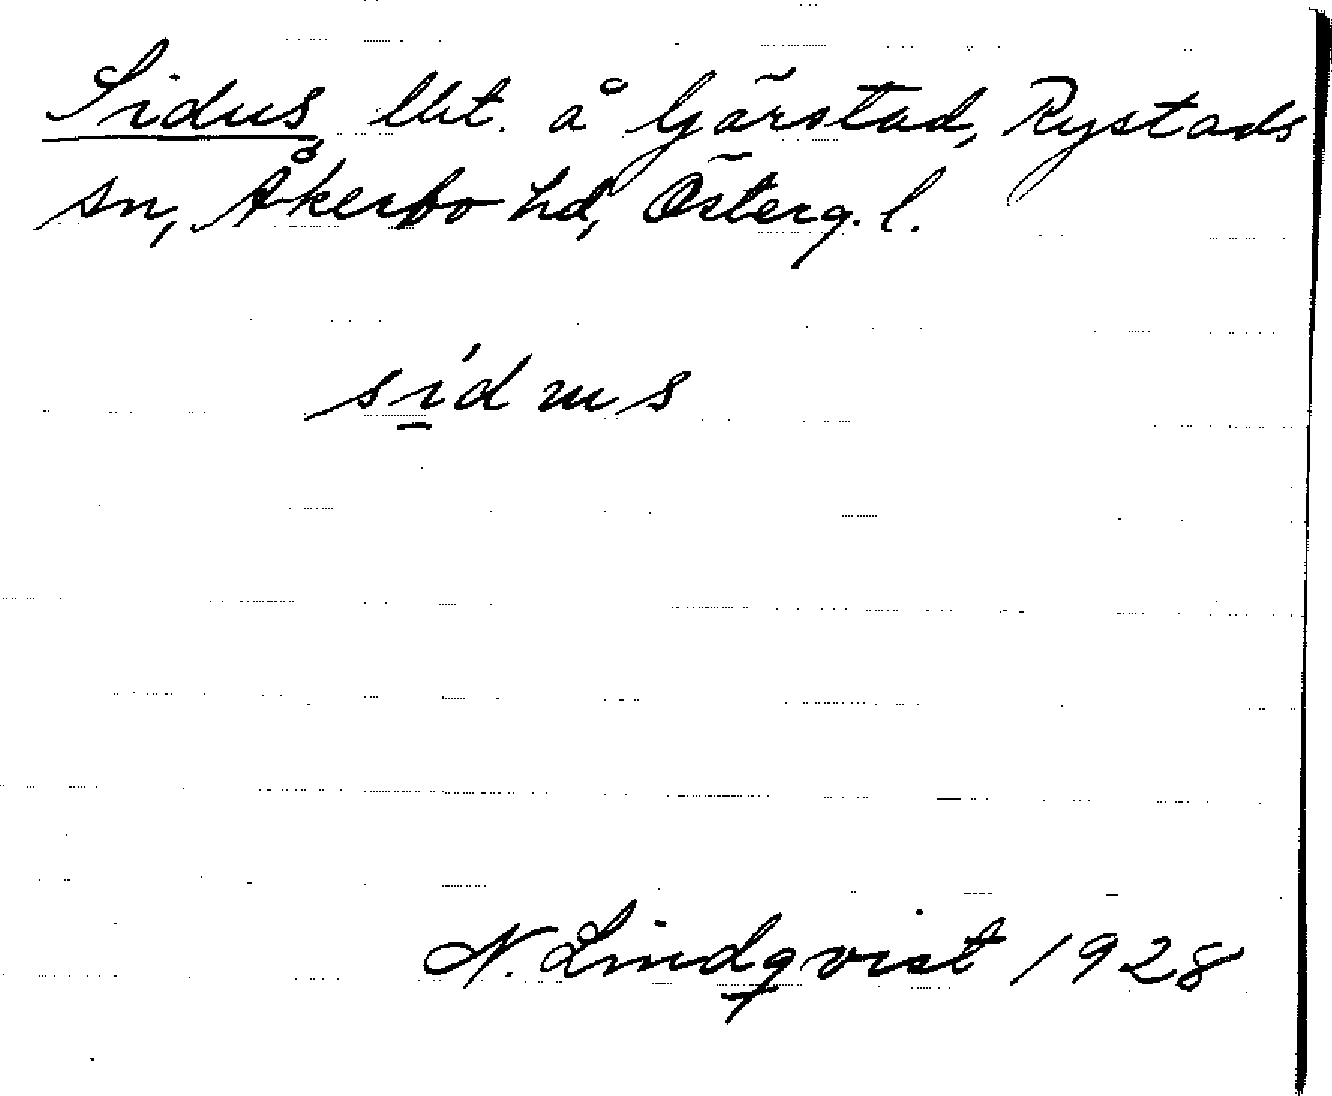 Sidus, lht. å Gärstad, Rystads
sn, Åkerbo hd, Österg. l.
sídus
N. Lindqvist 1928